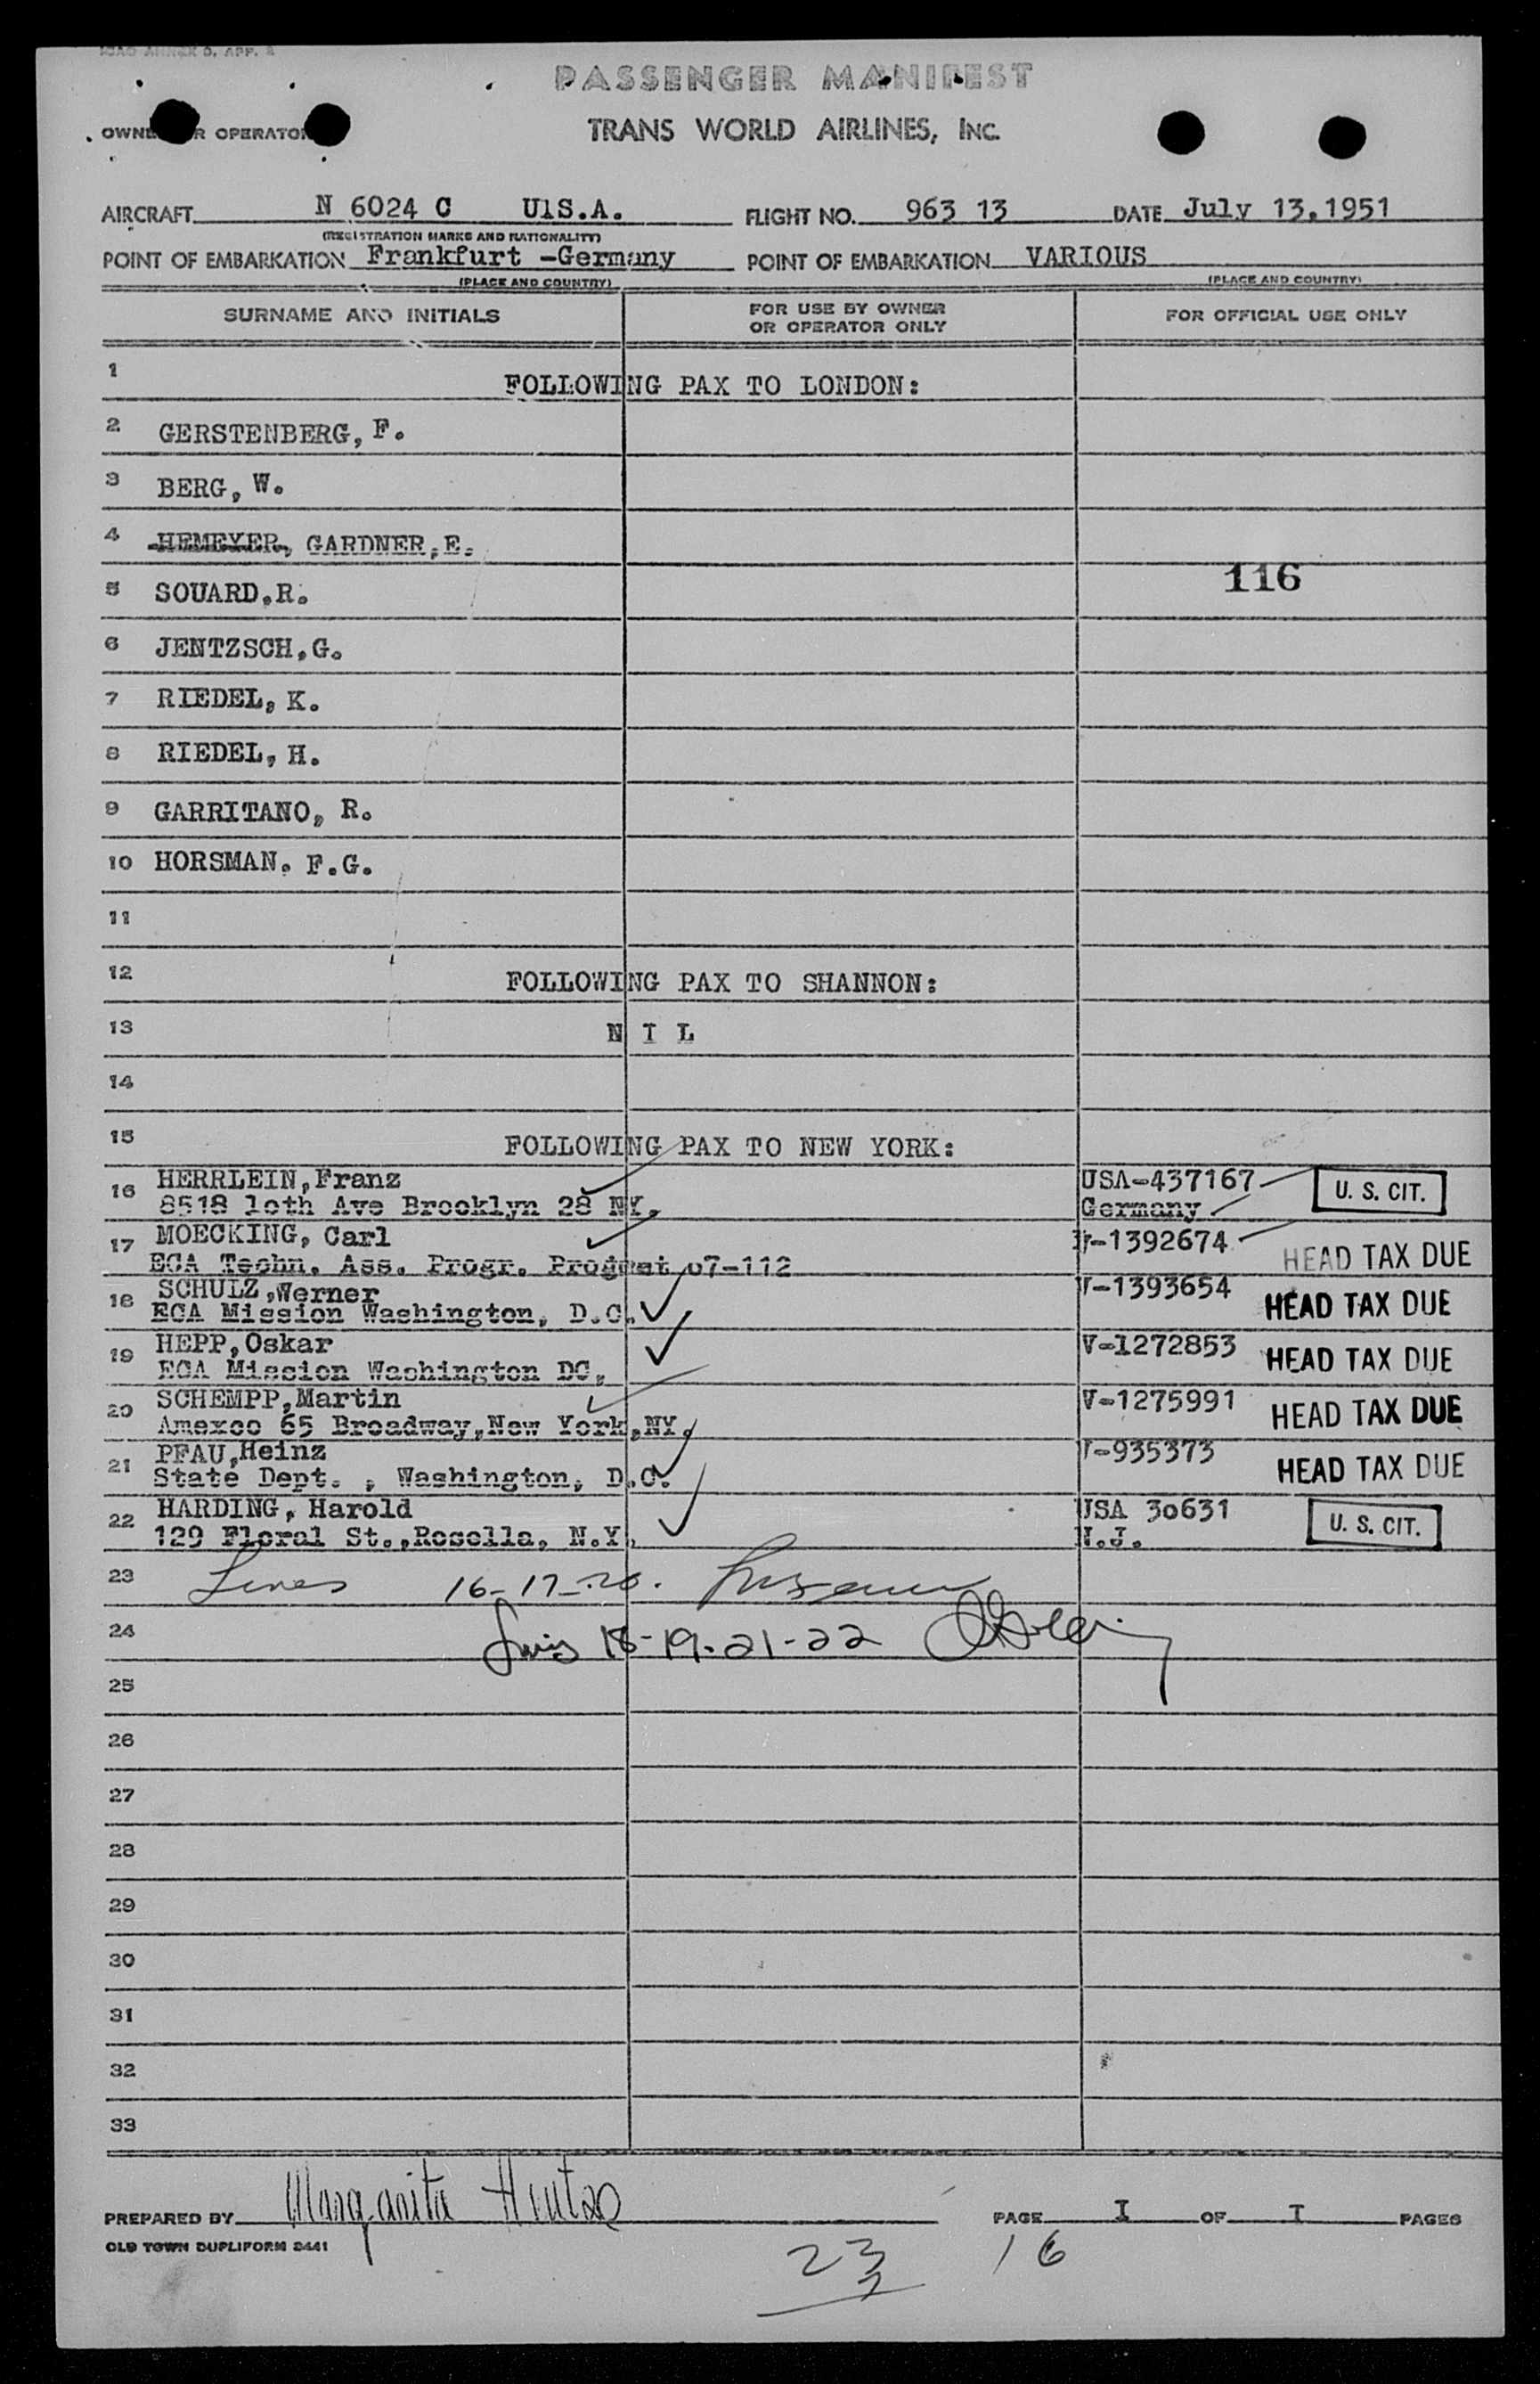 ICAO ANNEX 9, APP. 2
PASSENGER MANIFEST
OWNER OR OPERATOR TRANS WORLD AIRLINES, INC.
AIRCRAFT N 6024 C U1S.A. FLIGHT NO. 963 13 DATE July 13,1951
(REGISTRATION MARKS AND NATIONALITY)
POINT OF EMBARKATION Frankfurt -Germany POINT OF EMBARKATION VARIOUS
(PLACE AND COUNTRY) (PLACE AND COUNTRY)
SURNAME AND INITIALS FOR USE BY OWNER OR OPERATOR ONLY FOR OFFICIAL USE ONLY
1 FOLLOWING PAX TO LONDON:
2 GERSTENBERG, F.
3 BERG, W.
4 HEMEYER, GARDNER,E.
116
5 SOUARD,R.
6 JENTZSCH,G.
7 RIEDEL, K.
8 RIEDEL, H.
9 GARRITANO, R.
10 HORSMAN. F.G.
11
12 FOLLOWING PAX TO SHANNON:
13 N I L
14
15 FOLLOWING PAX TO NEW YORK:
16 HERRLEIN,Franz USA-437167 U. S. CIT.
8518 1oth Ave Brooklyn 28 NY. Germany
17 MOECKING, Carl V-1392674 HEAD TAX DUE
ECA Techn. Ass. Progr. o7-112
18 SCHULZ,Werner V-1393654 HEAD TAX DUE
ECA Mission Washington, D.C.
19 HEPP,Oskar V-1272853 HEAD TAX DUE
ECA Mission Washington DC,
20 SCHEMPP,Martin V-1275991 HEAD TAX DUE
Amexco 65 Broadway,New York,NY.
21 PFAU,Heinz V-935373 HEAD TAX DUE
State Dept. , Washington, D.C.
22 HARDING, Harold USA 3o631 U. S. CIT.
129 Floral St.,Rosella, N.Y. N.J.
23 Lines 16-17-20.
24 18-19-21-22
25
26
27
28
29
30
31
32
33
PREPARED BY Margarita Hintze PAGE I OF I PAGES
OLD TOWN DUPLIFORM 3441
23 16
7